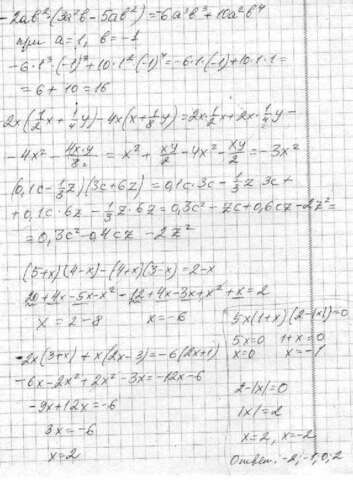 -2ab²·(3a²b-5ab²)=-6a³b³+10a²b⁴
при a=1, b=-1
-6·1³·(-1)³+10·1²(-1)⁴=-6·1·(-1)+10·1·1=
=6+10=16
2x(1/2x+1/4y)-4x(x+1/8y)=2x·1/2x+2x·1/4y-
-4x²-4x·y/8=x²+xy/2-4x²-xy/2=-3x²
(0,1c-1/3z)(3c+6z)=0,1c·3c-1/3z·3c+
+0,1c·6z-1/3z·6z=0,3c²-zc+0,6cz-2z²=
=0,3c²-0,4cz-2z²
(5+x)(4-x)-(4+x)(3-x)=2-x
20+4x-5x-x²-12+4x-3x+x²+x=2
x=2-8 x=-6
-2x(3+x)+x(2x-3)=-6(2x+1)
-6x-2x²+2x²-3x=-12x-6
-9x+12x=-6
3x=-6
x=2
5x(1+x)(2-|x|)=0
5x=0 1+x=0
x=0 x=-1
2-|x|=0
|x|=2
x=2, x=-2
Ответ. -2,-1,0,2